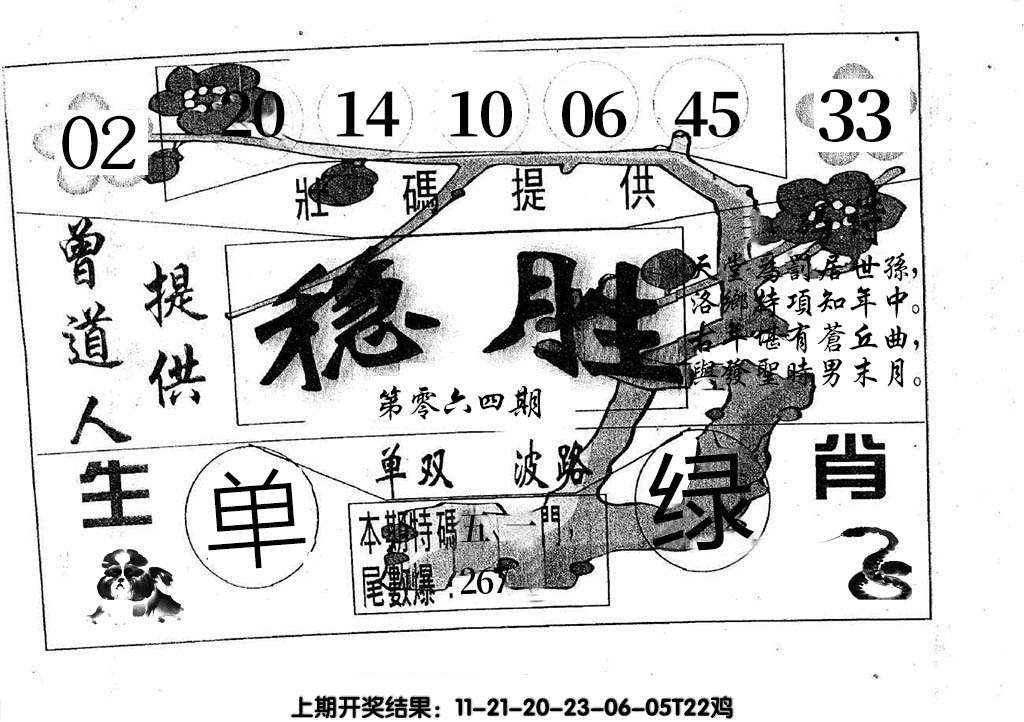 02 20 14 10 06 45 33
壯碼提供
特
曾道人
提供
稳胜
第零六四期
天堂為罰居世孫，
洛鄉特項知年中。
右年偡有蒼丘曲，
與發聖時男末月。
生肖
单双 波路
单
绿
本期特碼五、一門，
尾數爆：267
上期开奖结果：11-21-20-23-06-05T22鸡